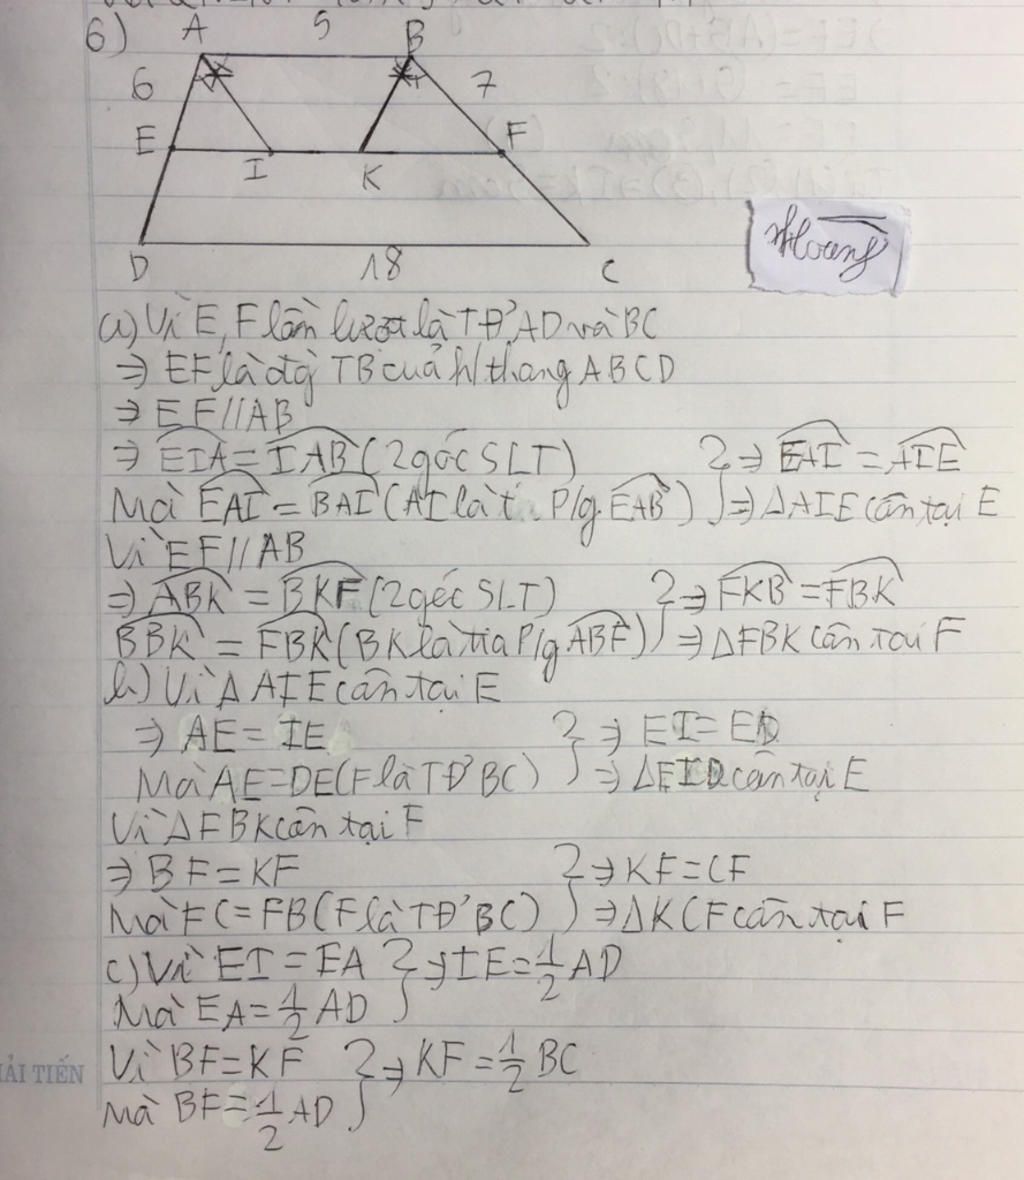 6)
A 5 B
6 7
E F
I K
D 18 C
Hoang
a) Vì E, F lần lượt là TĐ' AD và BC
⇒ EF là đg TB của h/thang ABCD
⇒ EF//AB
⇒ EIA = IAB (2 góc SLT) } ⇒ EAI = AIE
Mà EAI = BAI (AI là t. P/g. EAB) } ⇒ ΔAIE cân tại E
Vì EF//AB
⇒ ABK = BKF (2 góc SLT) } ⇒ FKB = FBK
BBK = FBK (BK là tia P/g ABF) } ⇒ ΔFBK cân tại F
b) Vì Δ AIE cân tại E
⇒ AE = IE } ⇒ EI = ED
Mà AE = DE (F là TĐ' BC) } ⇒ ΔEID cân tại E
Vì ΔFBK cân tại F
⇒ BF = KF } ⇒ KF = CF
Mà FC = FB (F là TĐ' BC) } ⇒ ΔKCF cân tại F
c) Vì EI = EA } ⇒ IE = 1/2 AD
Mà EA = 1/2 AD
Vì BF = KF } ⇒ KF = 1/2 BC
ẢI TIẾN
Mà BF = 1/2 AD